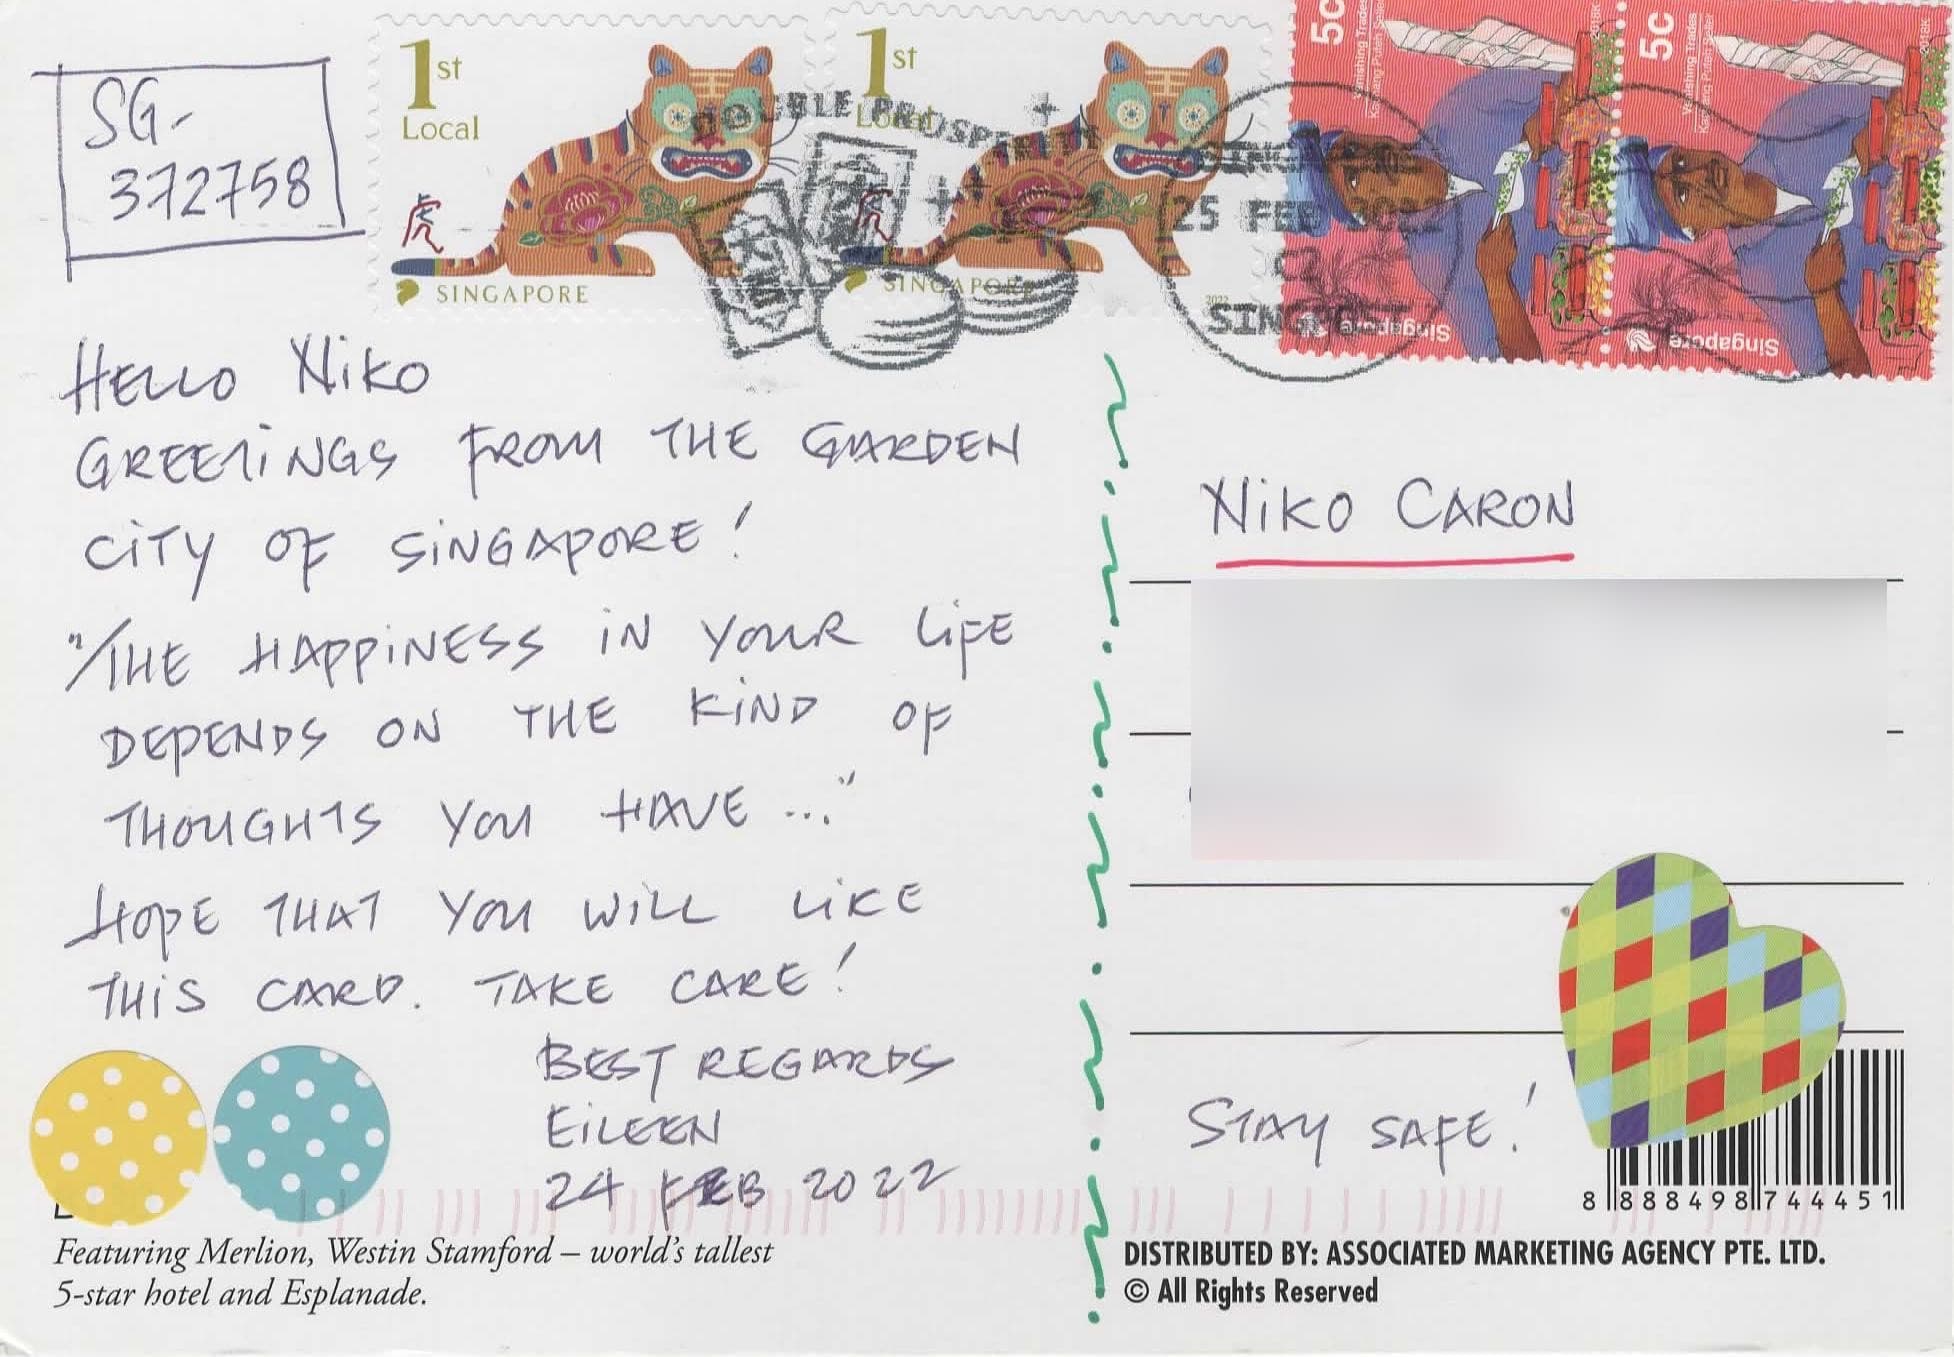 SG-
372758
1st
Local
虎
SINGAPORE
1st
Local
虎
SINGAPORE
2022
5c
Vanishing Trades
Kacang Puteh Seller
2018K
Singapore
5c
Vanishing Trades
Kacang Puteh Seller
2018K
Singapore
DOUBLE PROSPERITY
25 FEB
SINGPOST
HELLO NIKO
GREETINGS FROM THE GARDEN
CITY OF SINGAPORE!
"THE HAPPINESS IN YOUR LIFE
DEPENDS ON THE KIND OF
THOUGHTS YOU HAVE ..."
HOPE THAT YOU WILL LIKE
THIS CARD. TAKE CARE!
BEST REGARDS
EILEEN
24 FEB 2022
Featuring Merlion, Westin Stamford – world's tallest
5-star hotel and Esplanade.
NIKO CARON
STAY SAFE!
8 888498 744451
DISTRIBUTED BY: ASSOCIATED MARKETING AGENCY PTE. LTD.
© All Rights Reserved